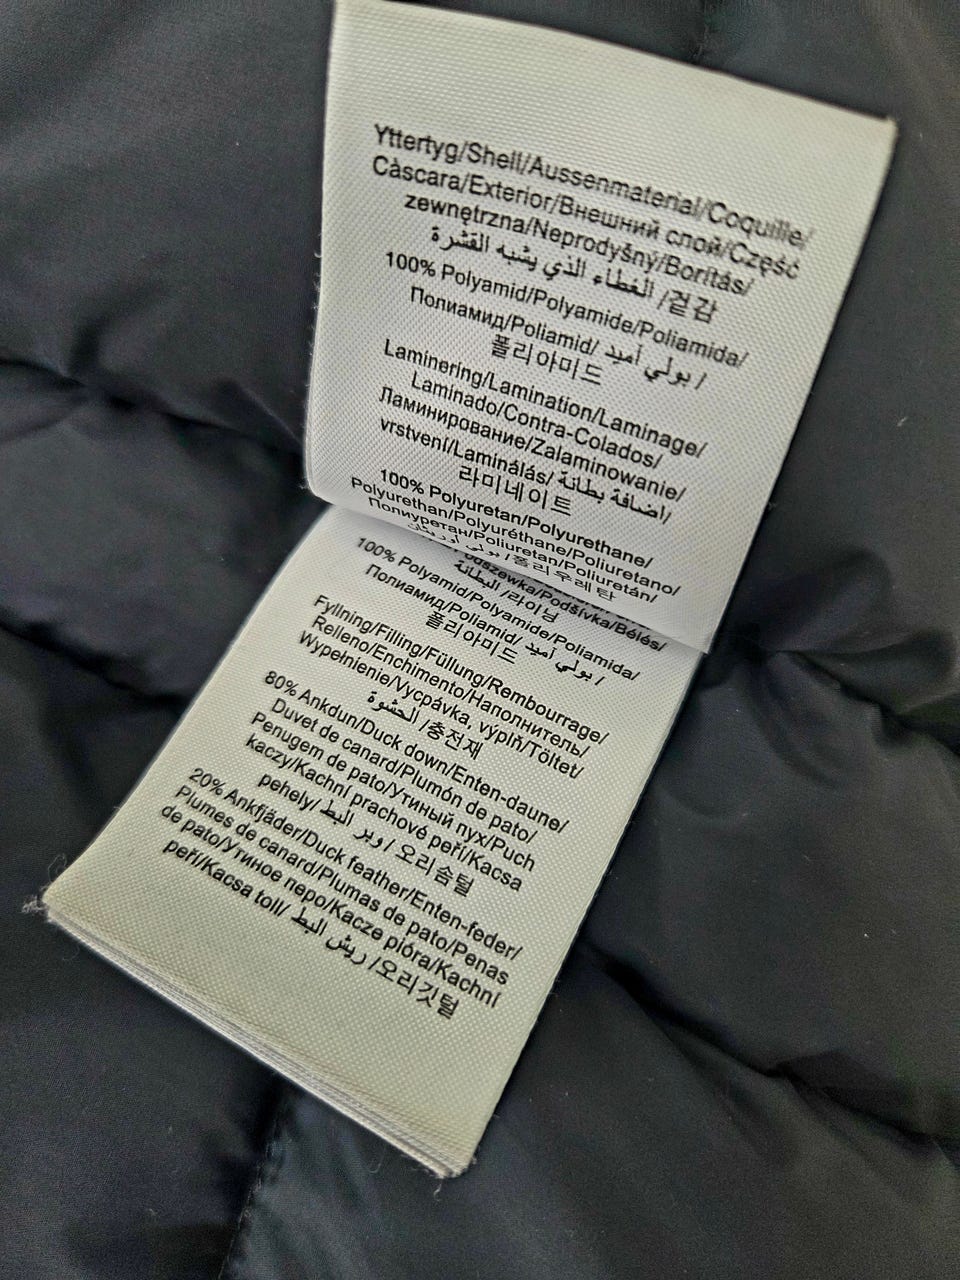 Yttertyg/Shell/Aussenmaterial/Coquille/
Càscara/Exterior/Внешний слой/Część
zewnętrzna/Neprodyšný/Borítás/
겉감/ الغطاء الذي يشبه القشرة
100% Polyamid/Polyamide/Poliamida/
Полиамид/Poliamid/ بولي أميد /
폴리아미드
Laminering/Lamination/Laminage/
Laminado/Contra-Colados/
Ламинирование/Zalaminowanie/
vrstvení/Laminálás/ اضافة بطانة/
라미네이트
100% Polyuretan/Polyurethane/
Polyurethan/Polyuréthane/Poliuretano/
Полиуретан/Poliuretan/Poliuretán/
폴리우레탄/
Podszewka/Podšívka/Bélés/
라이닝/ البطانة
100% Polyamid/Polyamide/Poliamida/
Полиамид/Poliamid/ بولي أميد /
폴리아미드
Fyllning/Filling/Füllung/Rembourrage/
Relleno/Enchimento/Наполнитель/
Wypełnienie/Vycpávka, výplň/Töltet/
충전재/ الحشوة
80% Ankdun/Duck down/Enten-daune/
Duvet de canard/Plumón de pato/
Penugem de pato/Утиный пух/Puch
kaczy/Kachní prachové peří/Kacsa
pehely/ وبر البط / 오리솜털
20% Ankfjäder/Duck feather/Enten-feder/
Plumes de canard/Plumas de pato/Penas
de pato/Утиное перо/Kacze pióra/Kachní
peří/Kacsa toll/ ريش البط /오리깃털